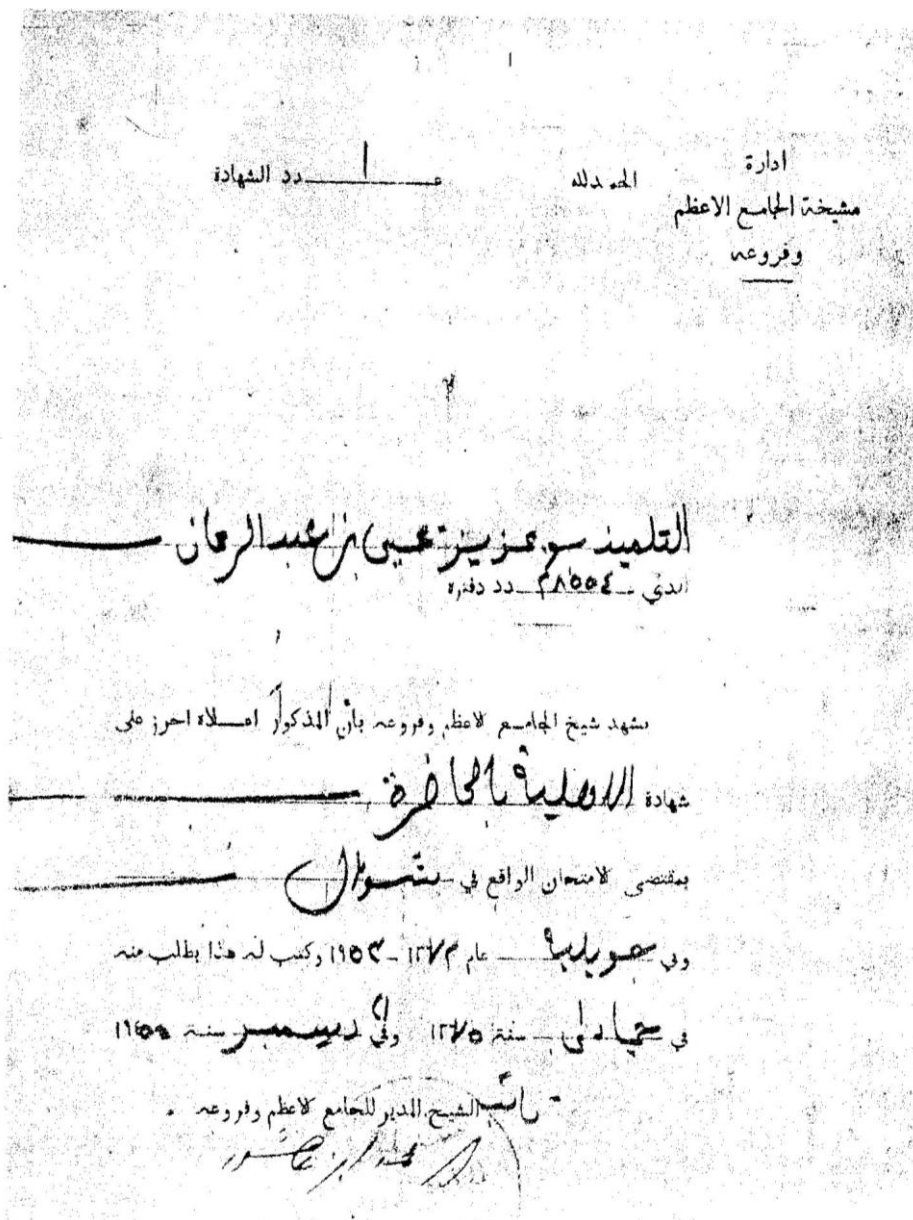 ادارة
مشيخة الجامع الاعظم
وفروعه
الحمد لله
عــدد الشهادة ١
التلميذ بو عزيز يحيى بن عبد الرحمان
الذي دد دفتره
يشهد شيخ الجامع الاعظم وفروعه بان المذكور اعلاه احرز على
شهادة الاهلية بالحاضرة
بمقتضى الامتحان الواقع في شوال
وفي جويلية عام ١٣٧٢ - ١٩٥٣ وكتب له هذا بطلب منه
في جمادى سنة ١٣٧٥ وفي ديسمبر سنة
الشيخ المدير للجامع الاعظم وفروعه